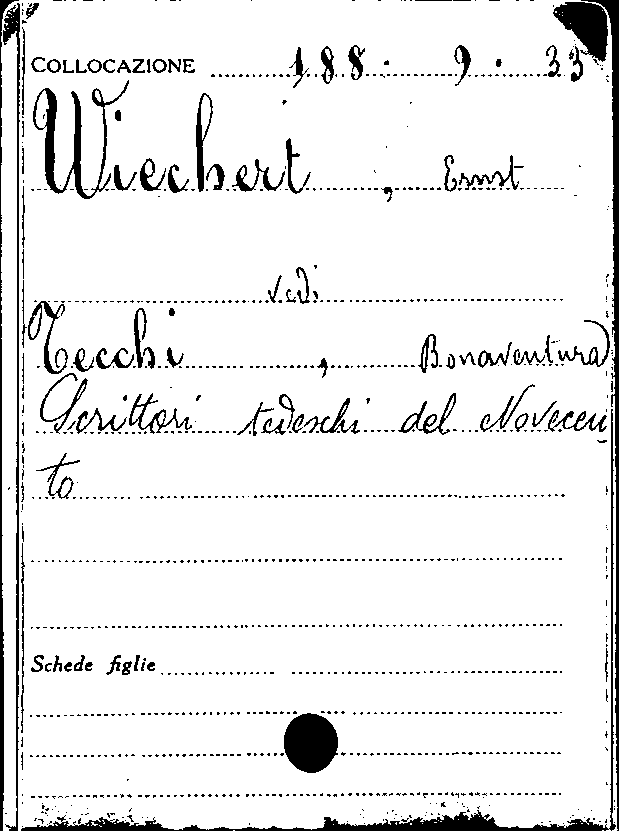 COLLOCAZIONE 188. 9. 33
Wiechert, Ernst
vedi
Tecchi, Bonaventura
Scrittori tedeschi del Novecen
to
Schede figlie